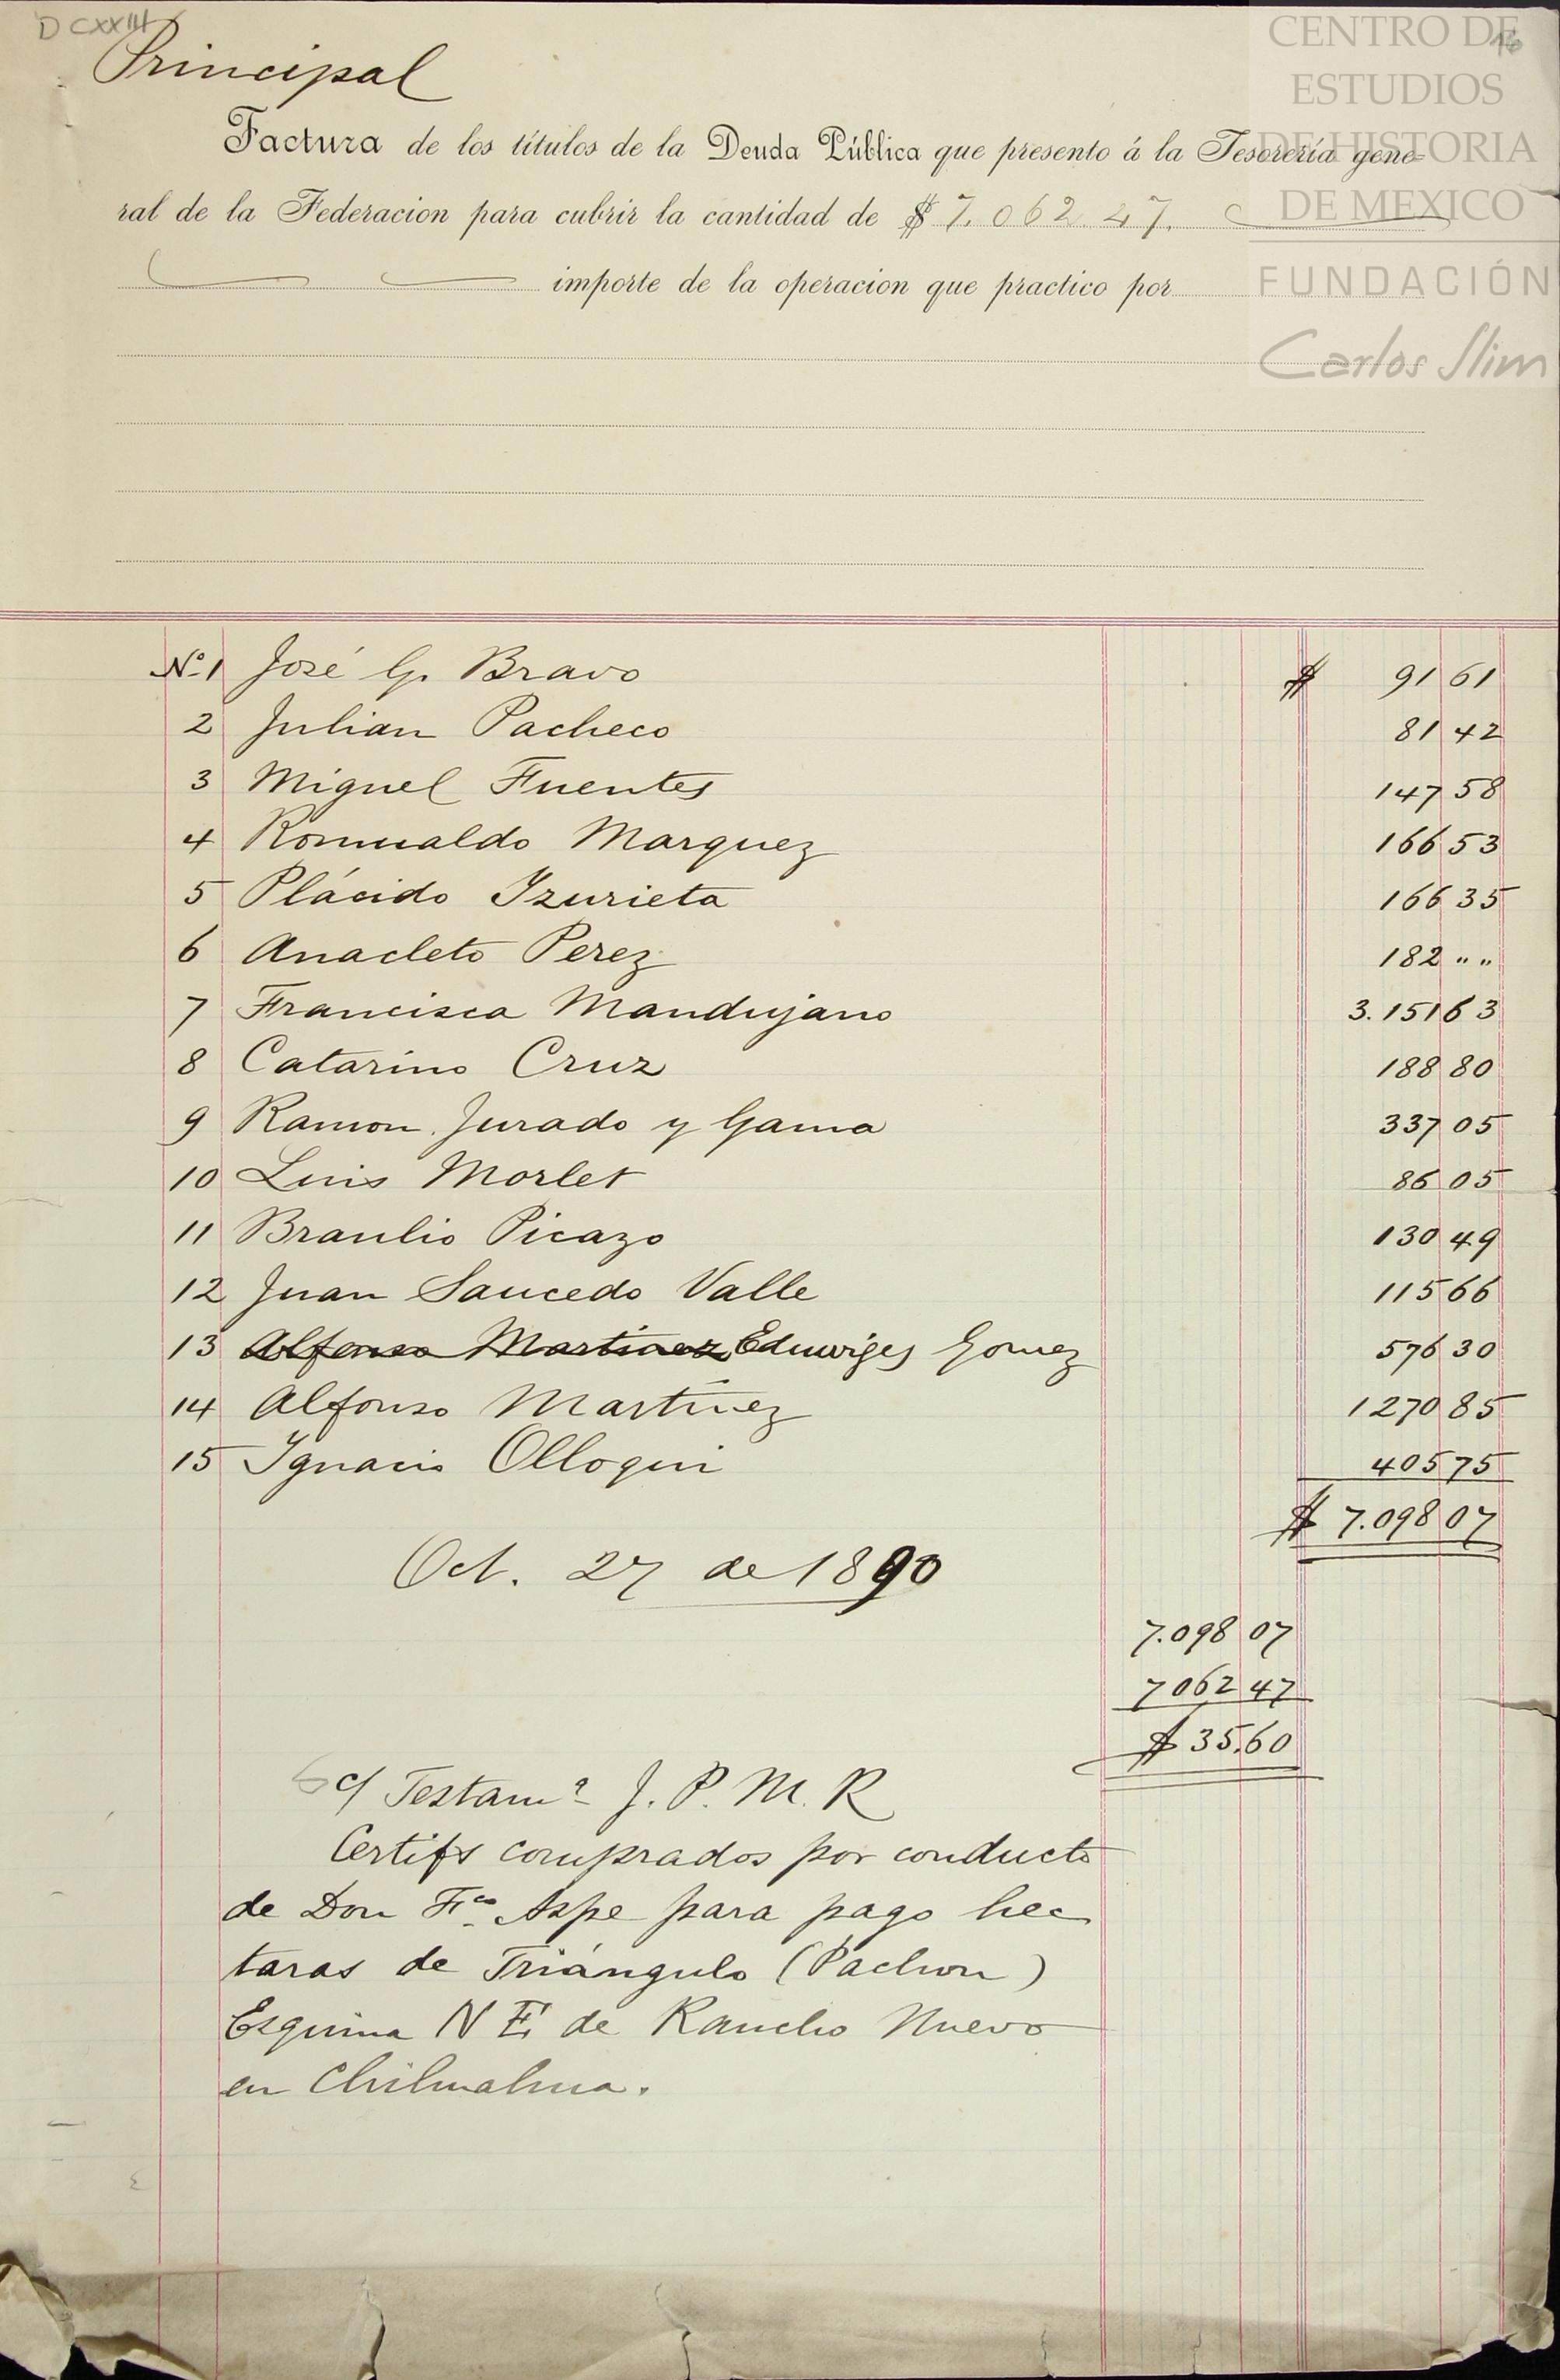 D CXXIII
Principal
CENTRO DE
ESTUDIOS
DE HISTORIA
DE MEXICO
FUNDACIÓN
Carlos Slim
Factura de los títulos de la Deuda Pública que presento á la Tesorería gene-
ral de la Federacion para cubrir la cantidad de $ 7.062 47.
importe de la operacion que practico por
No. 1 José G. Bravo $ 91 61
2 Julian Pacheco 81 42
3 Miguel Fuentes 147 58
4 Romualdo Marquez 166 53
5 Plácido Yzurieta 166 35
6 Anacleto Perez 182 " "
7 Francisca Mandujano 3.151 63
8 Catarino Cruz 188 80
9 Ramon Jurado y Gama 337 05
10 Luis Morlet 86 05
11 Braulio Picazo 130 49
12 Juan Saucedo Valle 115 66
13 Alfonso Martinez Eduwiges Gomez 576 30
14 Alfonso Martínez 1270 85
15 Ygnacio Olloqui 405 75
$ 7.098 07
Oct. 27 de 1890
7.098 07
7062 47
$ 35.60
c/ Testama J. P. M. R
Certifs comprados por conducto
de Don Fco Aspe para pago hec
taras de Triángulo (Pachon)
Esquina N E de Rancho Nuevo
en Chihuahua.